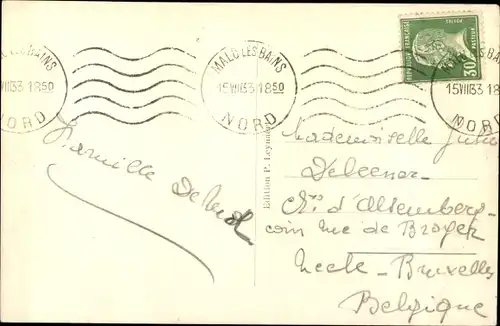 MALO LES BAINS
15 VIII 33 18 50
NORD
MALO LES BAINS
15 VIII 33 18 50
NORD
REPUBLIQUE FRANÇAISE
POSTES
PASTEUR
30
15 VIII 33 18
NORD
Famille
Edition P.
Mademoiselle
Deleener
d'Alsemberg
coin rue de
Uccle - Bruxelles
Belgique